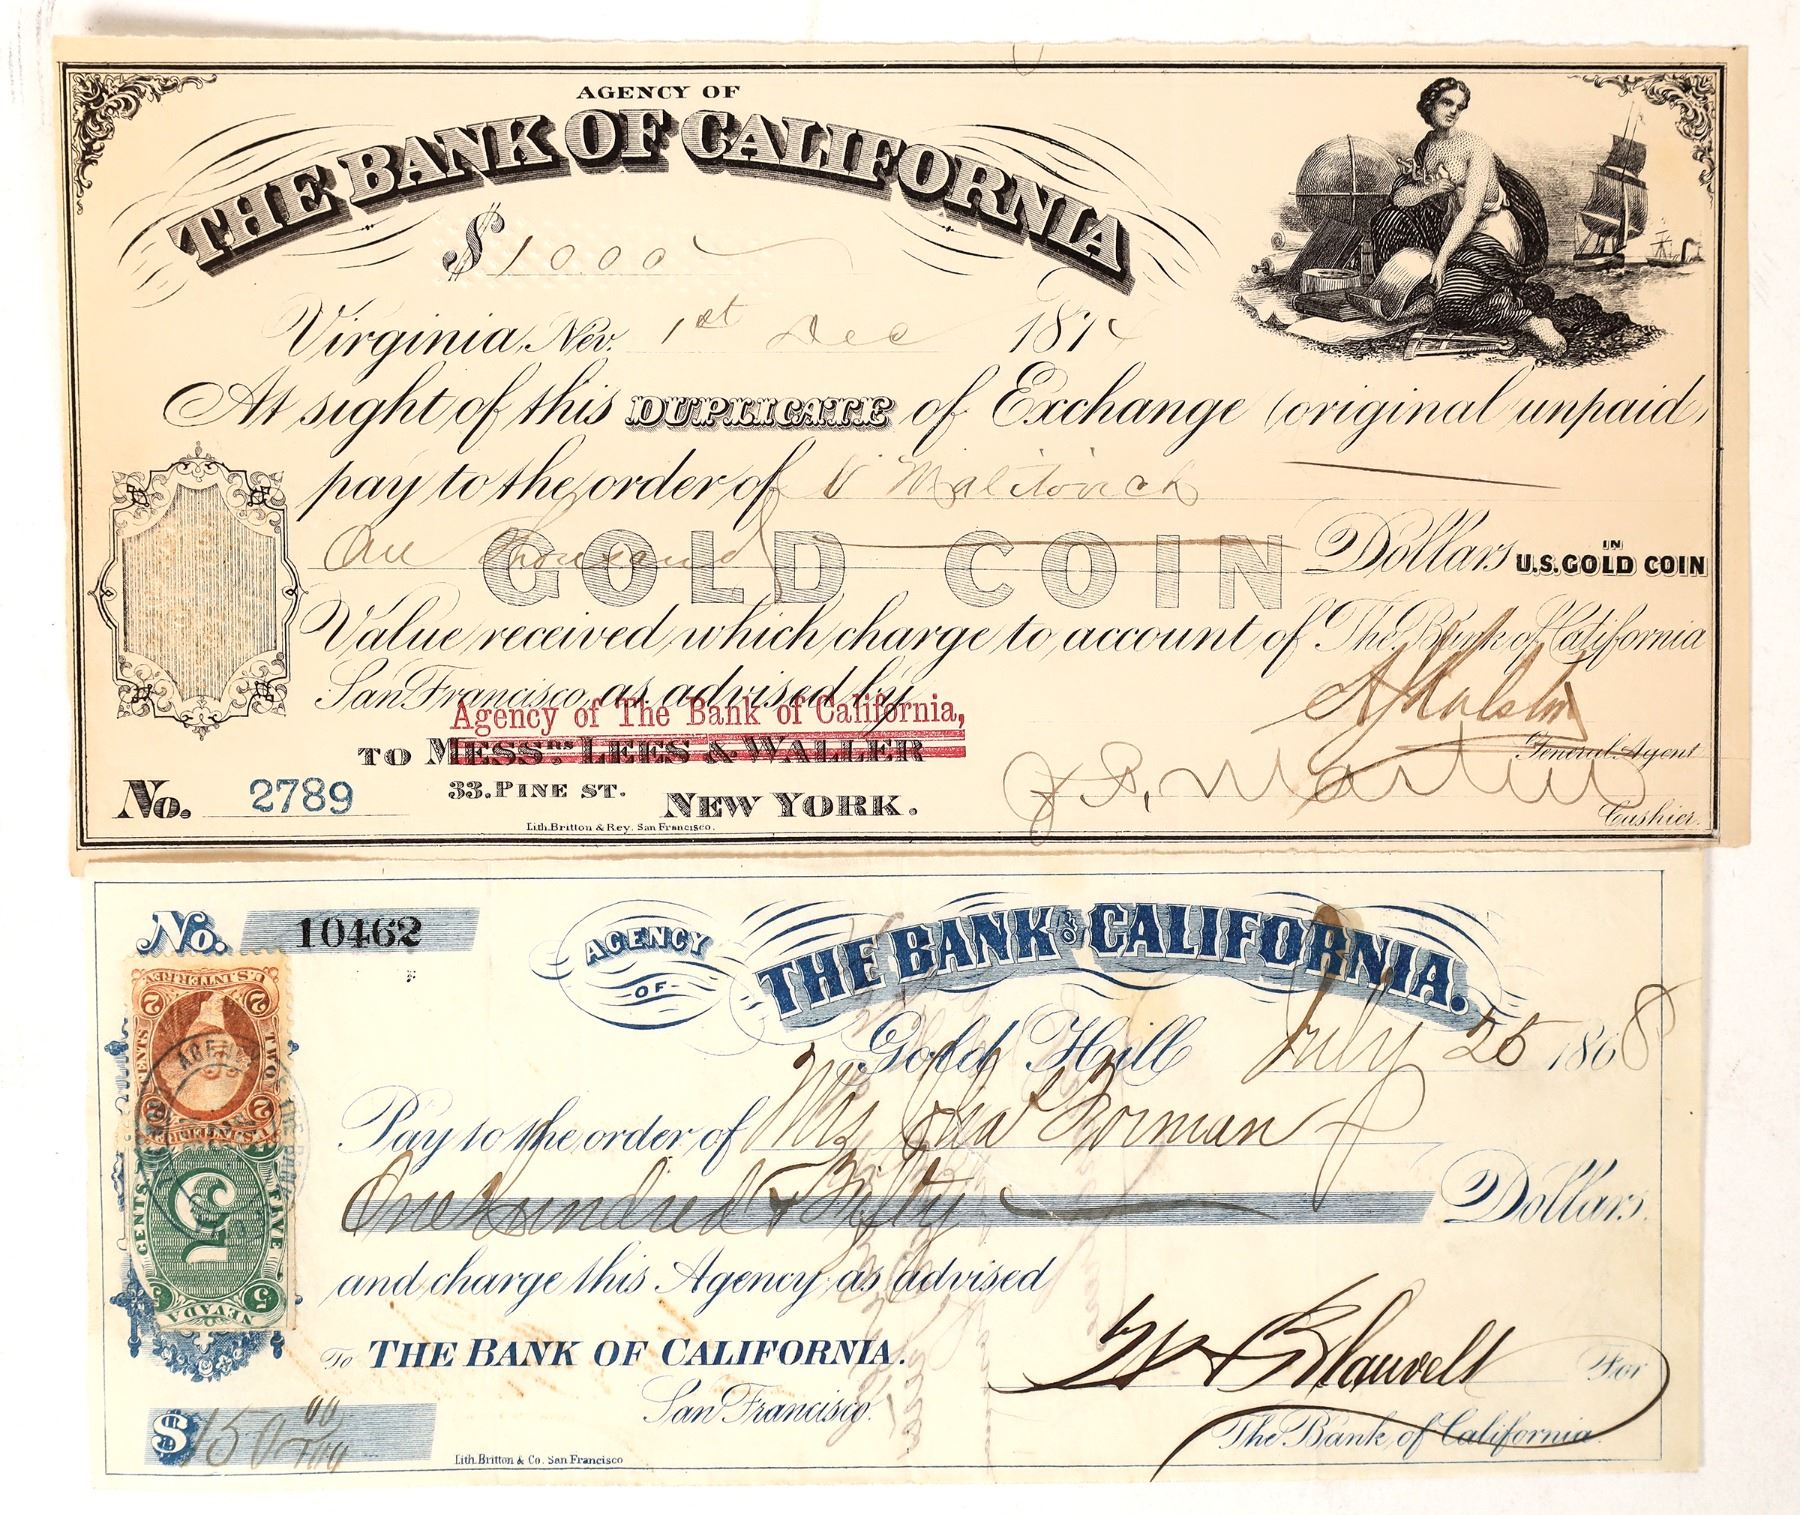 AGENCY OF
THE BANK OF CALIFORNIA
$ 1000
Virginia, Nev. 1st Dec 1874
At sight of this DUPLICATE of Exchange (original unpaid)
pay to the order of V Malitovich
One Thousand GOLD COIN Dollars IN U.S. GOLD COIN
Value received which charge to account of The Bank of California
San Francisco, as advised by
Agency of The Bank of California,
TO MESSRS. LEES & WALLER
33. PINE ST. NEW YORK.
No. 2789
AJ Ralston
General Agent
J. P. Martin
Cashier.
Lith. Britton & Rey. San Francisco.
No. 10462
AGENCY OF THE BANK OF CALIFORNIA.
Gold Hill July 25 1868
Pay to the order of Mrs Ida Forman
One Hundred & Fifty Dollars.
and charge this Agency as advised
To THE BANK OF CALIFORNIA.
San Francisco.
Wm B Blauvelt For
The Bank of California.
$ 150 00/100
Lith. Britton & Co. San Francisco
U.S. INTER. REV.
2 2
TWO CENTS
AGENCY THE BANK
2 2
U.S. INTER. REV.
FIVE CENTS
5 5
NEVADA